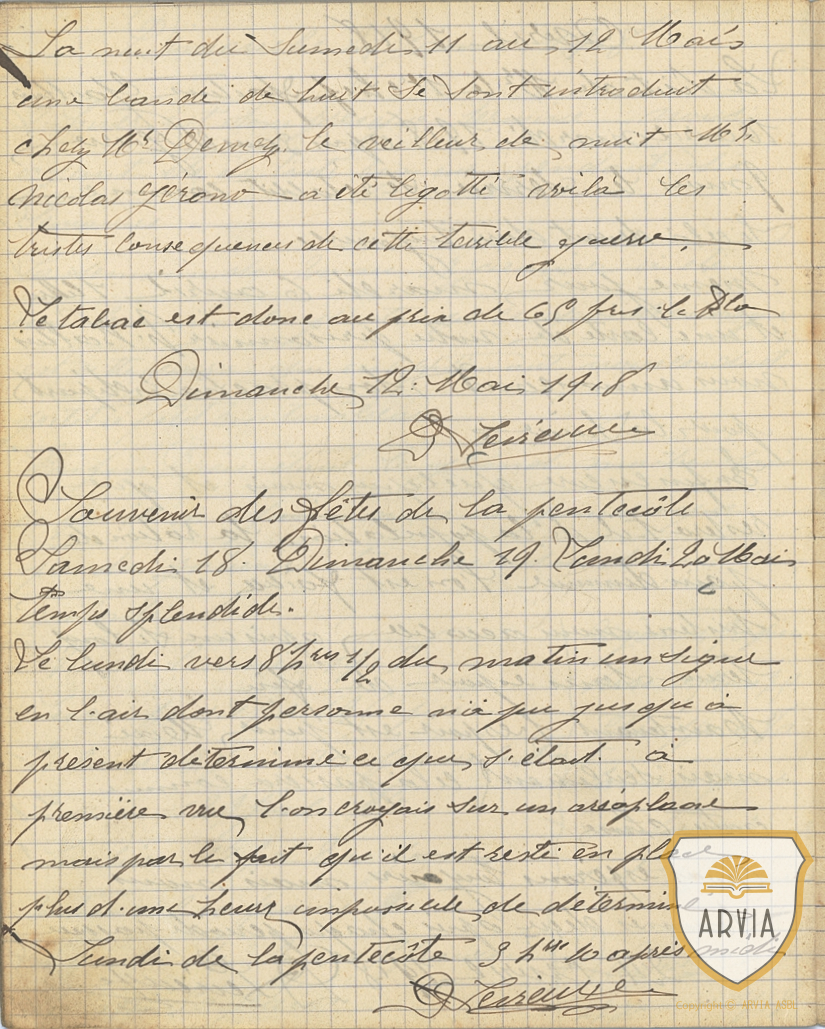 La nuit du Samedi 11 au 12 Mais
une bande de huit se sont introduit
chez Mr Demez. le veilleur de nuit Mr
Nicolas Gérono a été ligotté voilà les
tristes consequences de cette terrible guerre.
Le tabac est donc au prix de 65 frs le klo
Dimanche 12 Mai 1918
Souvenir des fêtes de la pentecôte
Samedi 18. Dimanche 19. Lundi 20 Mais
temps splendide.
Le lundi vers 8 hres 1/2 du matin un signe
en l'air dont personne n'a pu jusqu'à
présent déterminé ce que s'était. à
première vue, l'on croyais sur un aréoplane
mais par le fait qu'il est resté en place
plus d'une heure impossible de déterminé
Lundi de la pentecôte 3 hres 10 après midi
ARVIA
Copyright © ARVIA ASBL